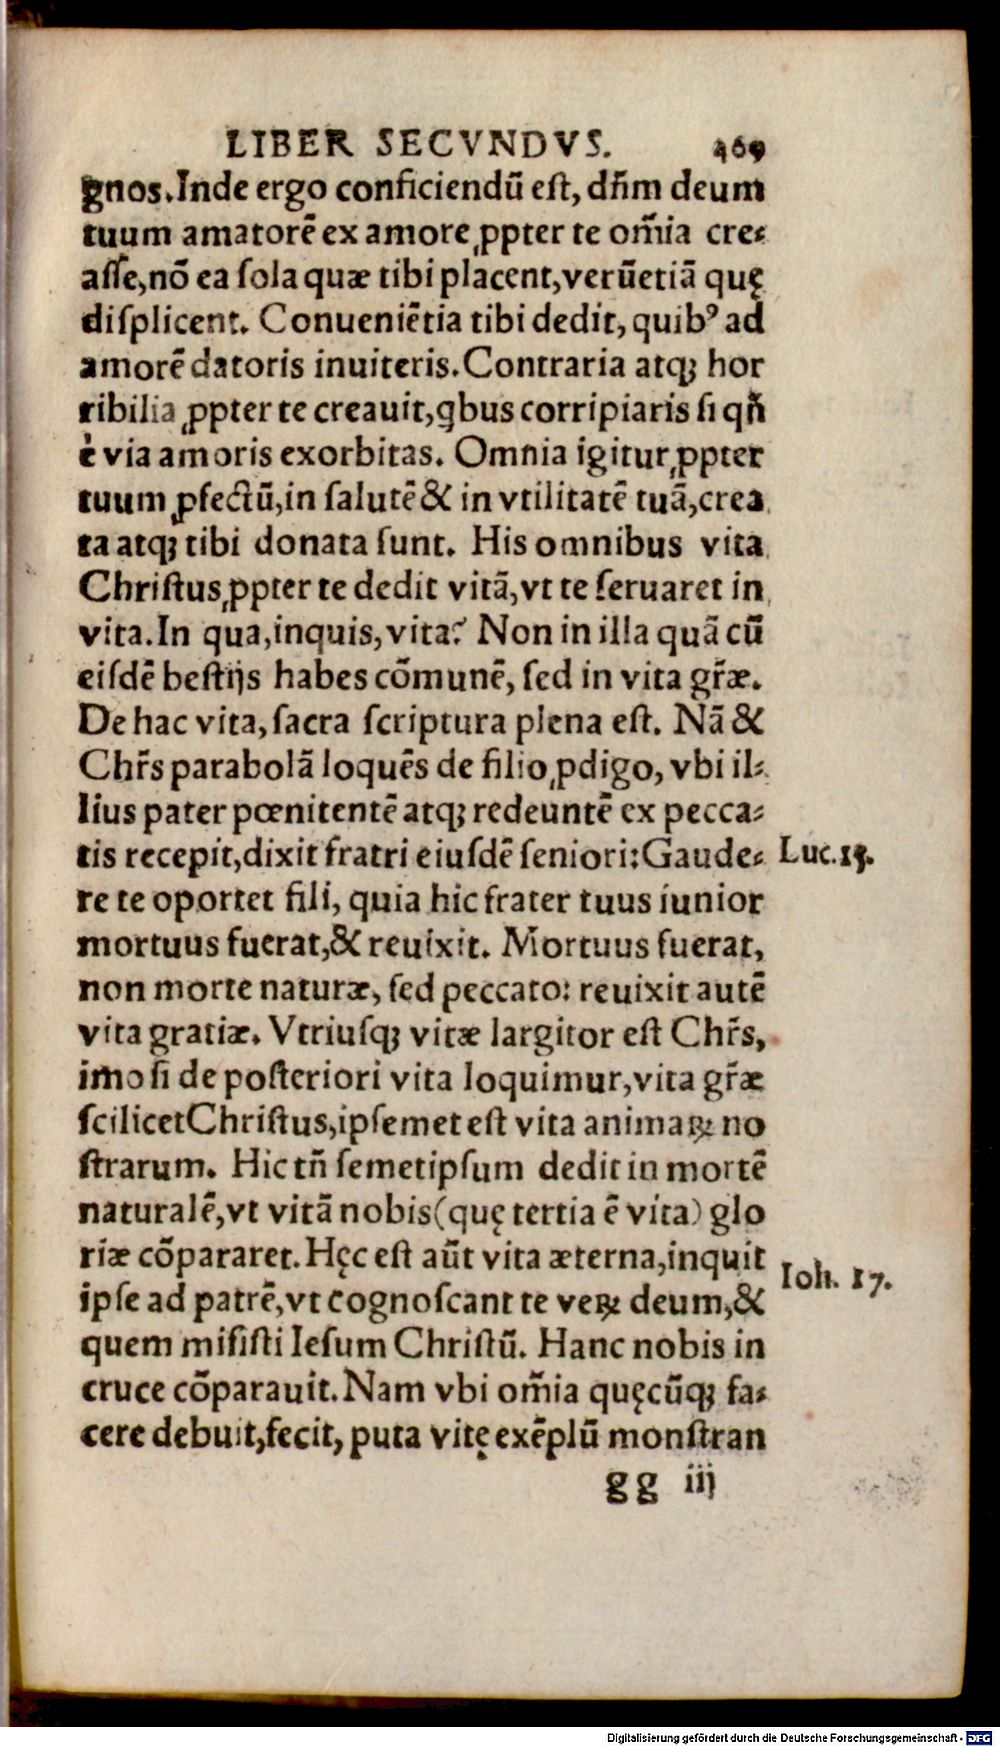 LIBER SECVNDVS. 469
gnos. Inde ergo conficiendũ eſt, dñm deum
tuum amatorẽ ex amore ꝓpter te om̃ia cre-
aſſe, nõ ea ſola quæ tibi placent, verũetiã quę
diſplicent. Conueniẽtia tibi dedit, quibꝰ ad
amorẽ datoris inuiteris. Contraria atqꝫ hor
ribilia ꝓpter te creauit, ꝗbus corripiaris ſi qñ
è via amoris exorbitas. Omnia igitur ꝓpter
tuum ꝓfectũ, in ſalutẽ & in vtilitatẽ tuã, crea
ta atqꝫ tibi donata ſunt. His omnibus vita
Chriſtus ꝓpter te dedit vitã, vt te ſeruaret in
vita. In qua, inquis, vita? Non in illa quã cũ
eiſdẽ beſtijs habes cõmunẽ, ſed in vita gr̃æ.
De hac vita, ſacra ſcriptura plena eſt. Nã &
Chr̃s parabolã loquẽs de filio ꝓdigo, vbi il-
lius pater pœnitentẽ atqꝫ redeuntẽ ex pecca-
tis recepit, dixit fratri eiuſdẽ ſeniori: Gaude-
Luc. 15.
re te oportet fili, quia hic frater tuus iunior
mortuus fuerat, & reuixit. Mortuus fuerat,
non morte naturæ, ſed peccato: reuixit autẽ
vita gratiæ. Vtriuſqꝫ vitæ largitor eſt Chr̃s,
imo ſi de poſteriori vita loquimur, vita gr̃æ
ſcilicet Chriſtus, ipſemet eſt vita animaꝝ no
ſtrarum. Hic tñ ſemetipſum dedit in mortẽ
naturalẽ, vt vitã nobis (quę tertia ẽ vita) glo
riæ cõpararet. Hęc eſt aũt vita æterna, inquit
Ioh. 17.
ipſe ad patrẽ, vt cognoſcant te veꝝ deum, &
quem miſiſti Ieſum Chriſtũ. Hanc nobis in
cruce cõparauit. Nam vbi om̃ia quęcũqꝫ fa-
cere debuit, fecit, puta vitę exẽplũ monſtran
gg iij
Digitalisierung gefördert durch die Deutsche Forschungsgemeinschaft - DFG